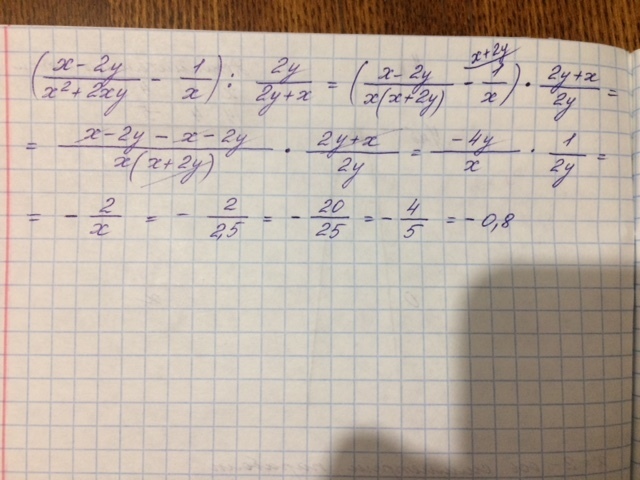 (x-2y/x²+2xy - 1/x) : 2y/2y+x = (x-2y/x(x+2y) - 1/x ^x+2y) · 2y+x/2y =
= x-2y-x-2y/x(x+2y) · 2y+x/2y = -4y/x · 1/2y =
= - 2/x = - 2/2,5 = - 20/25 = - 4/5 = - 0,8